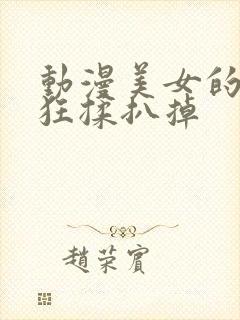 動漫美女的
狂揉扒掉
趙荣賓